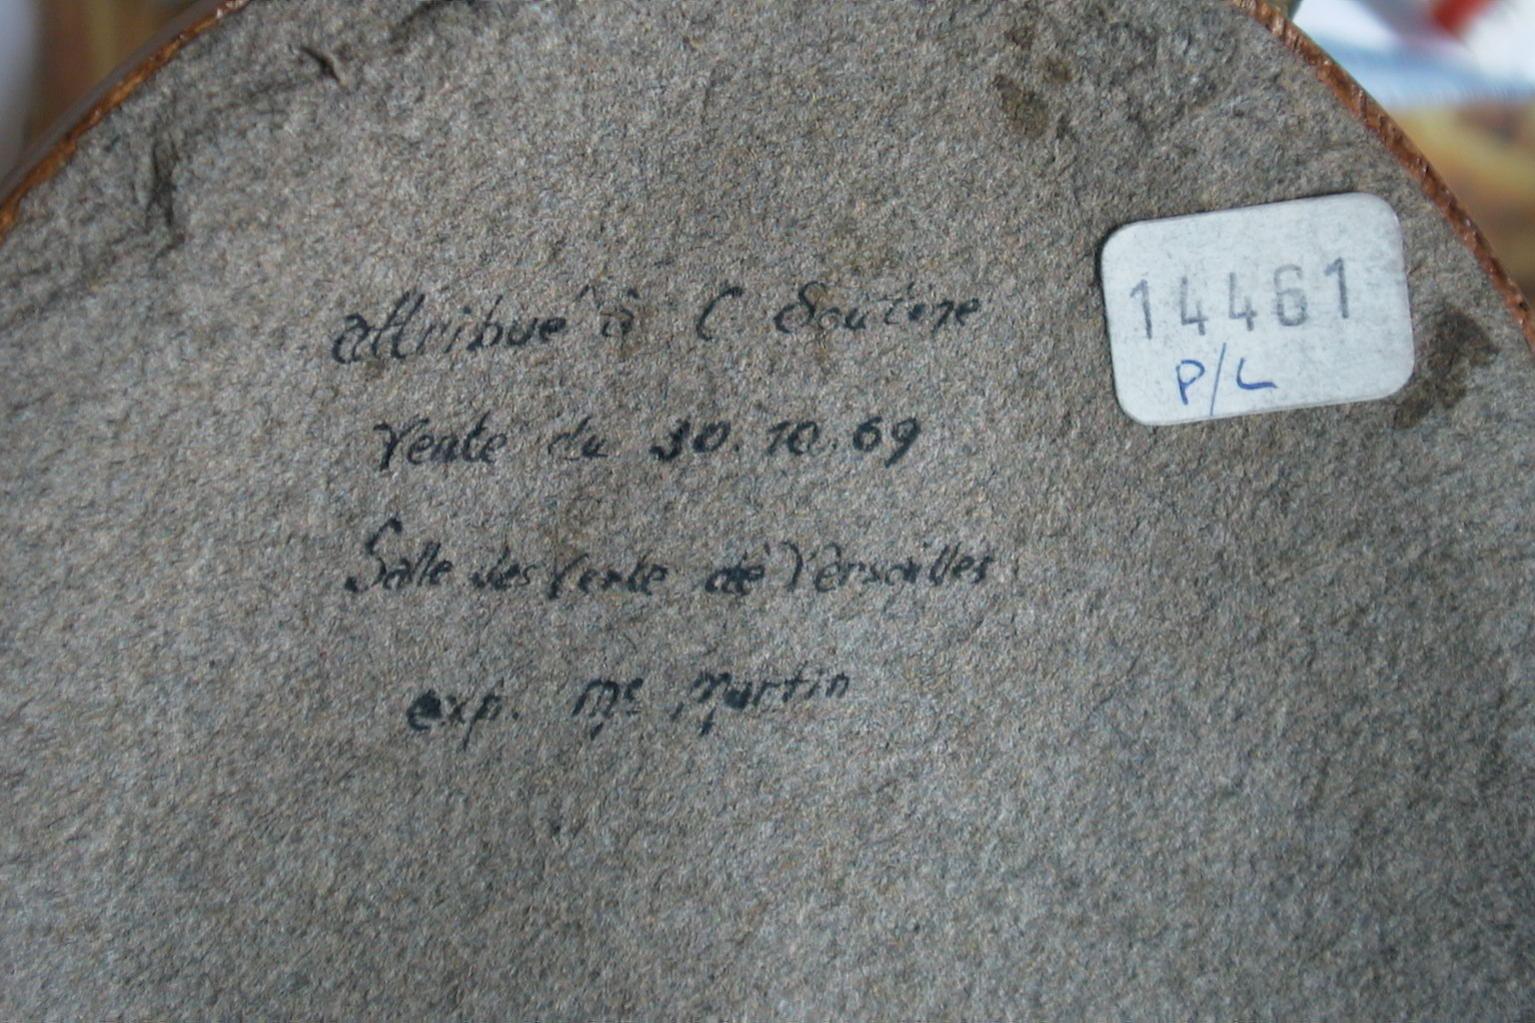 attribué à C Soutine
Vente du 30.10.69
Salle des Vente de Versailles
exp. Me Martin
14461
P/L